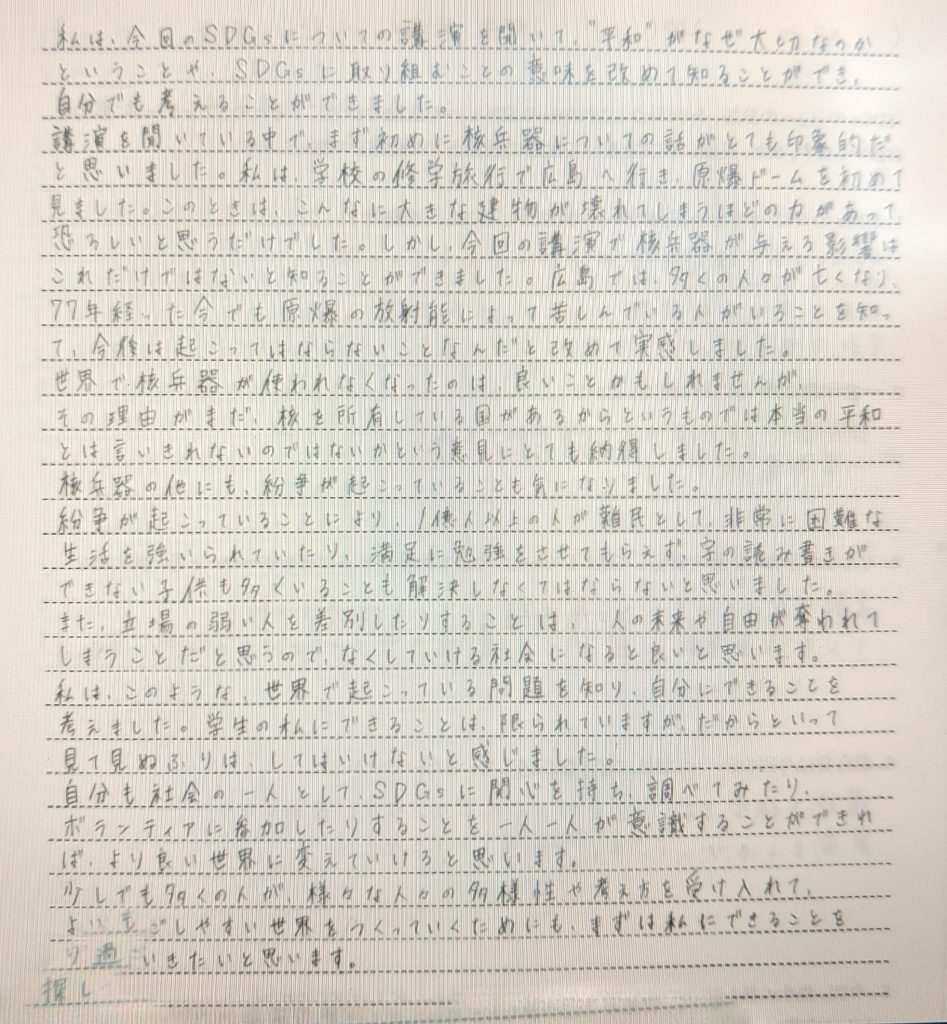 私は、今回のSDGsについての講演を聞いて、"平和"がなぜ大切なのか
ということや、SDGsに取り組むことの意味を改めて知ることができ、
自分でも考えることができました。
講演を聞いている中で、まず初めに核兵器についての話がとても印象的だ
と思いました。私は、学校の修学旅行で広島へ行き、原爆ドームを初めて
見ました。このときは、こんなに大きな建物が壊れてしまうほどの力があって
恐ろしいと思うだけでした。しかし、今回の講演で核兵器が与える影響は
これだけではないと知ることができました。広島では、多くの人々が亡くなり、
77年経った今でも原爆の放射能によって苦しんでいる人がいることを知っ
て、今後は起こってはならないことなんだと改めて実感しました。
世界で核兵器が使われなくなったのは、良いことかもしれませんが、
その理由がまだ、核を所有している国があるからというものでは本当の平和
とは言いきれないのではないかという意見にとても納得しました。
核兵器の他にも、紛争が起こっていることも気になりました。
紛争が起こっていることにより、1億人以上の人が難民として、非常に困難な
生活を強いられていたり、満足に勉強をさせてもらえず、字の読み書きが
できない子供も多くいることも解決しなくてはならないと思いました。
また、立場の弱い人を差別したりすることは、人の未来や自由が奪われて
しまうことだと思うので、なくしていける社会になると良いと思います。
私は、このような、世界で起こっている問題を知り、自分にできることを
考えました。学生の私にできることは、限られていますが、だからといって
見て見ぬふりは、してはいけないと感じました。
自分も社会の一人として、SDGsに関心を持ち、調べてみたり、
ボランティアに参加したりすることを一人一人が意識することができれ
ば、より良い世界に変えていけると思います。
少しでも多くの人が、様々な人々の多様性や考え方を受け入れて、
よ ごしやすい世界をつくっていくためにも、まずは私にできることを
り過 いきたいと思います。
探し